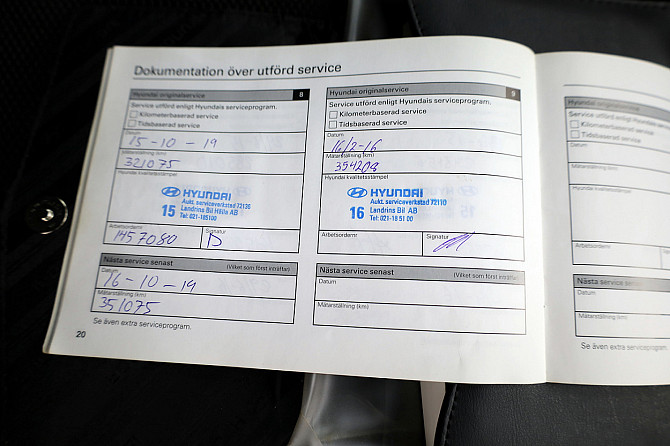 Dokumentation över utförd service
Hyundai originalservice 8
Service utförd enligt Hyundais serviceprogram.
Kilometerbaserad service
Tidsbaserad service
Datum
15-10-19
Mätarställning (km)
321075
Hyundai kvalitetsstämpel
HYUNDAI
15 Aukt. serviceverkstad 72135
Landrins Bil Hälla AB
Tel: 021-185100
Arbetsordernr Signatur
1457080
Nästa service senast (Vilket som först inträffar)
Datum
16-10-19
Mätarställning (km)
351075
Se även extra serviceprogram.
20
Hyundai originalservice 9
Service utförd enligt Hyundais serviceprogram.
Kilometerbaserad service
Tidsbaserad service
Datum
16/2-16
Mätarställning (km)
354208
Hyundai kvalitetsstämpel
HYUNDAI
16 Aukt. serviceverkstad 72110
Landrins Bil AB
Tel: 021-18 51 00
Arbetsordernr Signatur
Nästa service senast (Vilket som först inträffar)
Datum
Mätarställning (km)
Hyundai originalservice
Service utförd enligt Hyundais
Kilometerbaserad service
Tidsbaserad service
Datum
Mätarställning (km)
Hyundai kvalitetsstämpel
Arbetsordernr
Nästa service senast
Datum
Mätarställning (km)
Se även extra serviceprogram.